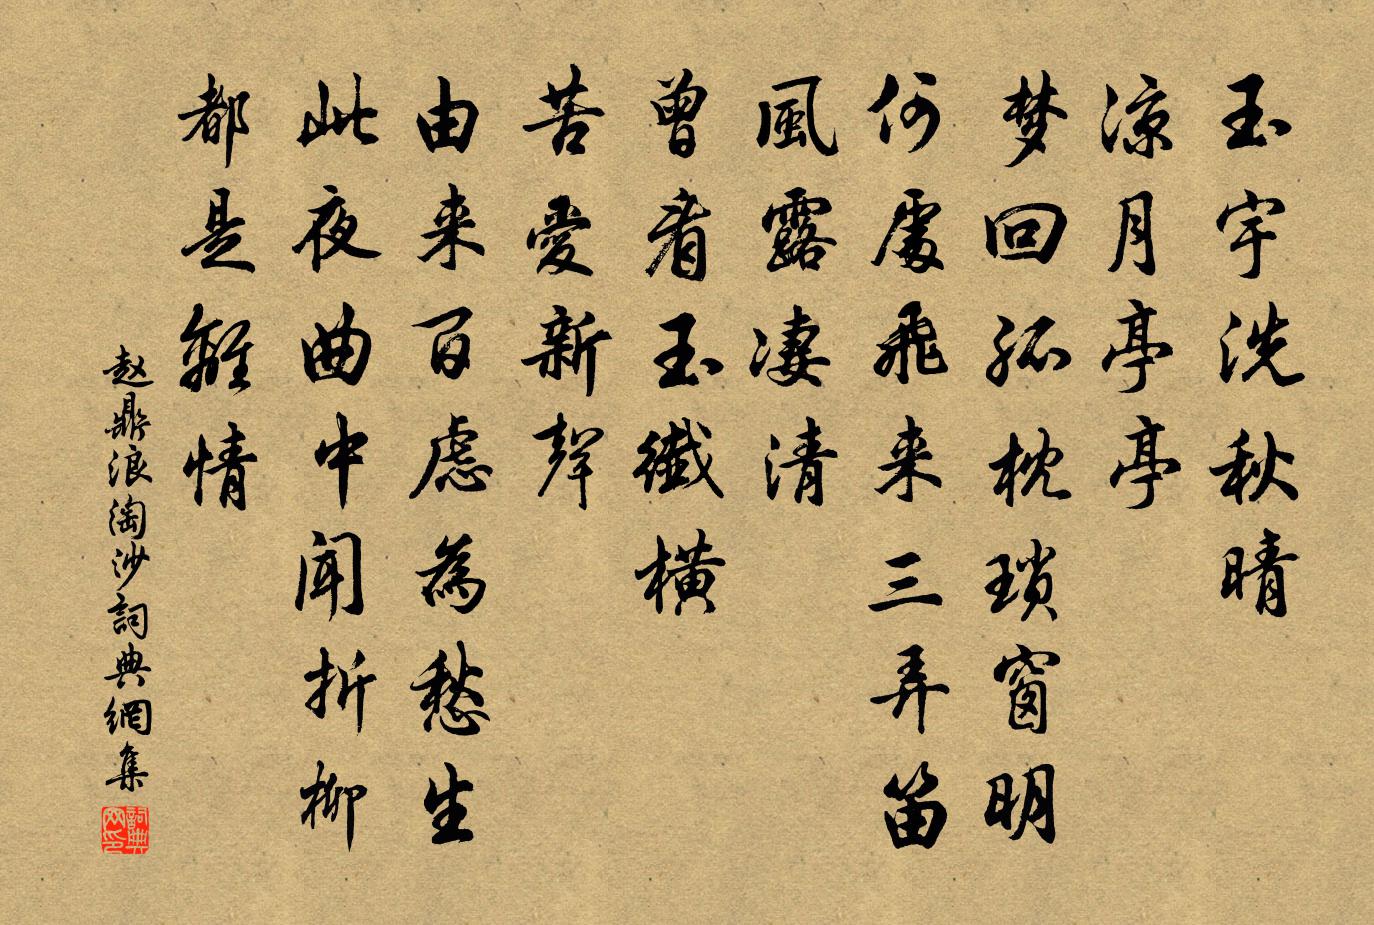 玉宇洗秋晴
凉月亭亭
梦回孤枕琐窗明
何處飛来三弄笛
風露凄清
曾看玉纖橫
苦愛新聲
由来百慮為愁生
此夜曲中聞折柳
都是離情
赵鼎浪淘沙詞典網集
詞典网印